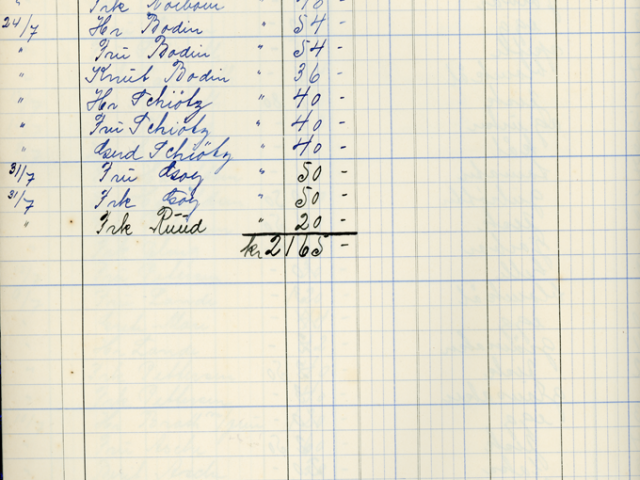 Frk
24/7 Hr Bodin " 54 -
" Fru Bodin " 54 -
" Knut Bodin " 36 -
" Hr Schiötz " 40 -
" Fru Schiötz " 40 -
" Schiötz " 40 -
31/7 Fru " 50 -
31/7 Frk " 50 -
" Frk Ruud " 20 -
kr 2165 -